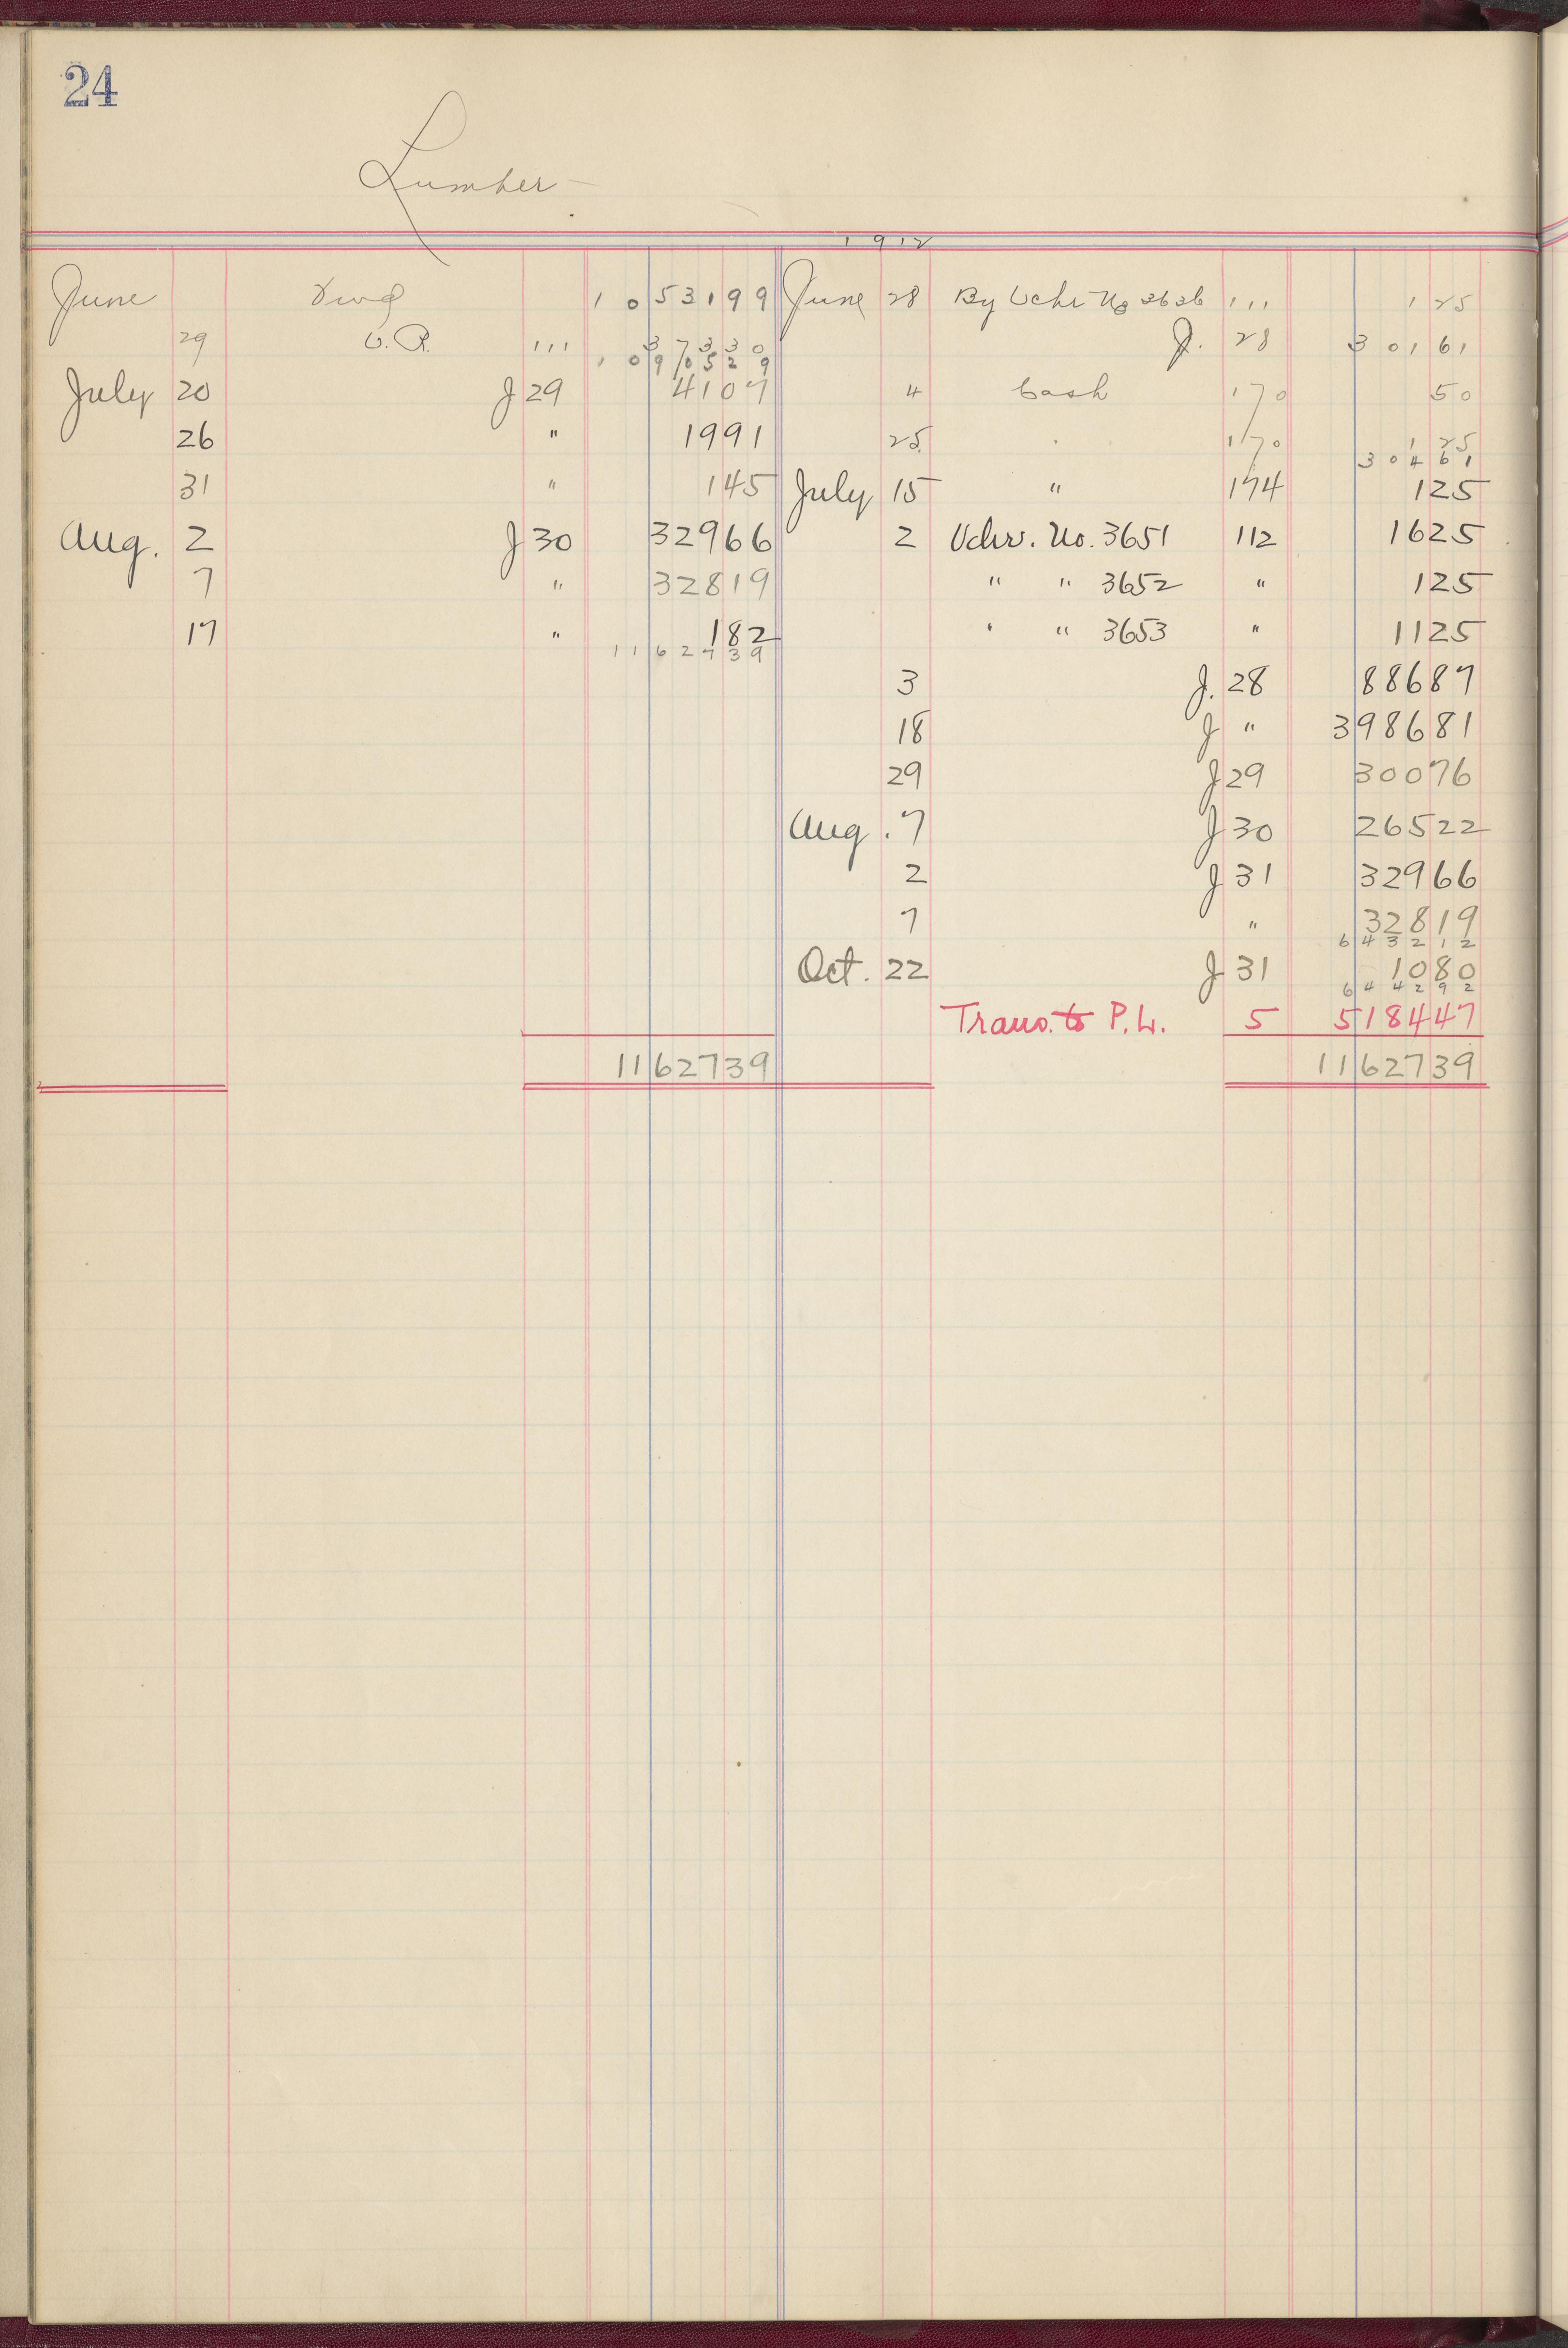 24
Lumber
1912
June Fwd 10 531 99 June 28 By Vchr No 3626 111 1 25
29 V.R. 111 373 30 J. 28 301 61
10 905 29
July 20 J 29 41 07 4 Cash 170 50
26 " 19 91 25 " 170 1 25
304 61
31 " 1 45 July 15 " 174 1 25
Aug. 2 J 30 329 66 2 Vchr. No. 3651 112 16 25
7 " 328 19 " " 3652 " 1 25
17 " 1 82 " " 3653 " 11 25
11 627 39
3 J. 28 886 87
18 J " 3 986 81
29 J 29 300 76
Aug. 7 J 30 265 22
2 J 31 329 66
7 " 328 19
6 432 12
Oct. 22 J 31 10 80
6 442 92
Trans. to P.L. 5 5 184 47
11 627 39 11 627 39